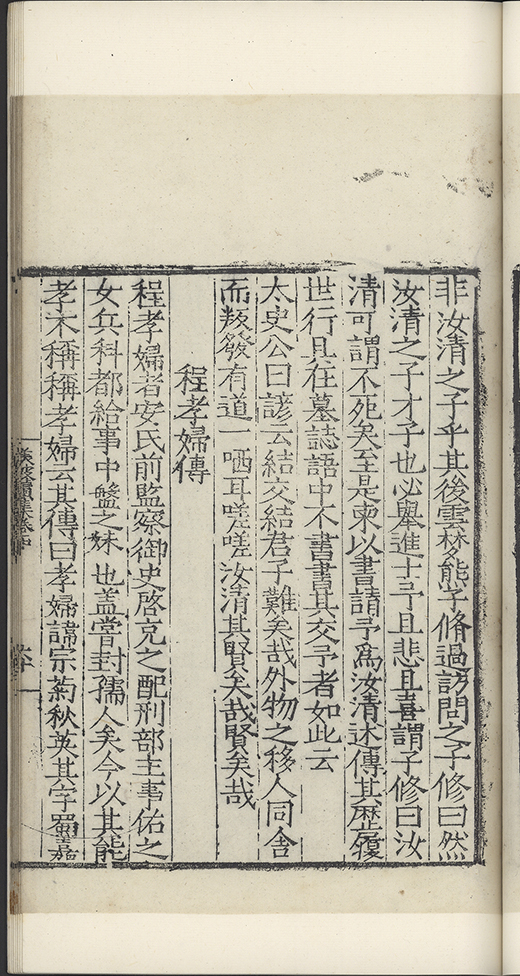 非汝清之子乎其後雲琴能字脩過訪問之子修曰然
汝清之子才子也必舉進士予且悲且喜謂子修曰汝
清可謂不死矣至是柬以書請予爲汝清述傳其歷履
世行具在墓誌語中不書書其交予者如此云
太史公曰諺云結交結君子難矣哉外物之移人同舍
而叛發有道一哂耳嗟嗟汝清其賢矣哉賢矣哉
程孝婦傳
程孝婦者安氏前監察御史啓充之配刑部主事佑之
女兵科都給事中盤之妹也盖嘗封孺人矣今以其能
孝不稱稱孝婦云其傳曰孝婦諱宗菊秋英其字蜀嘉